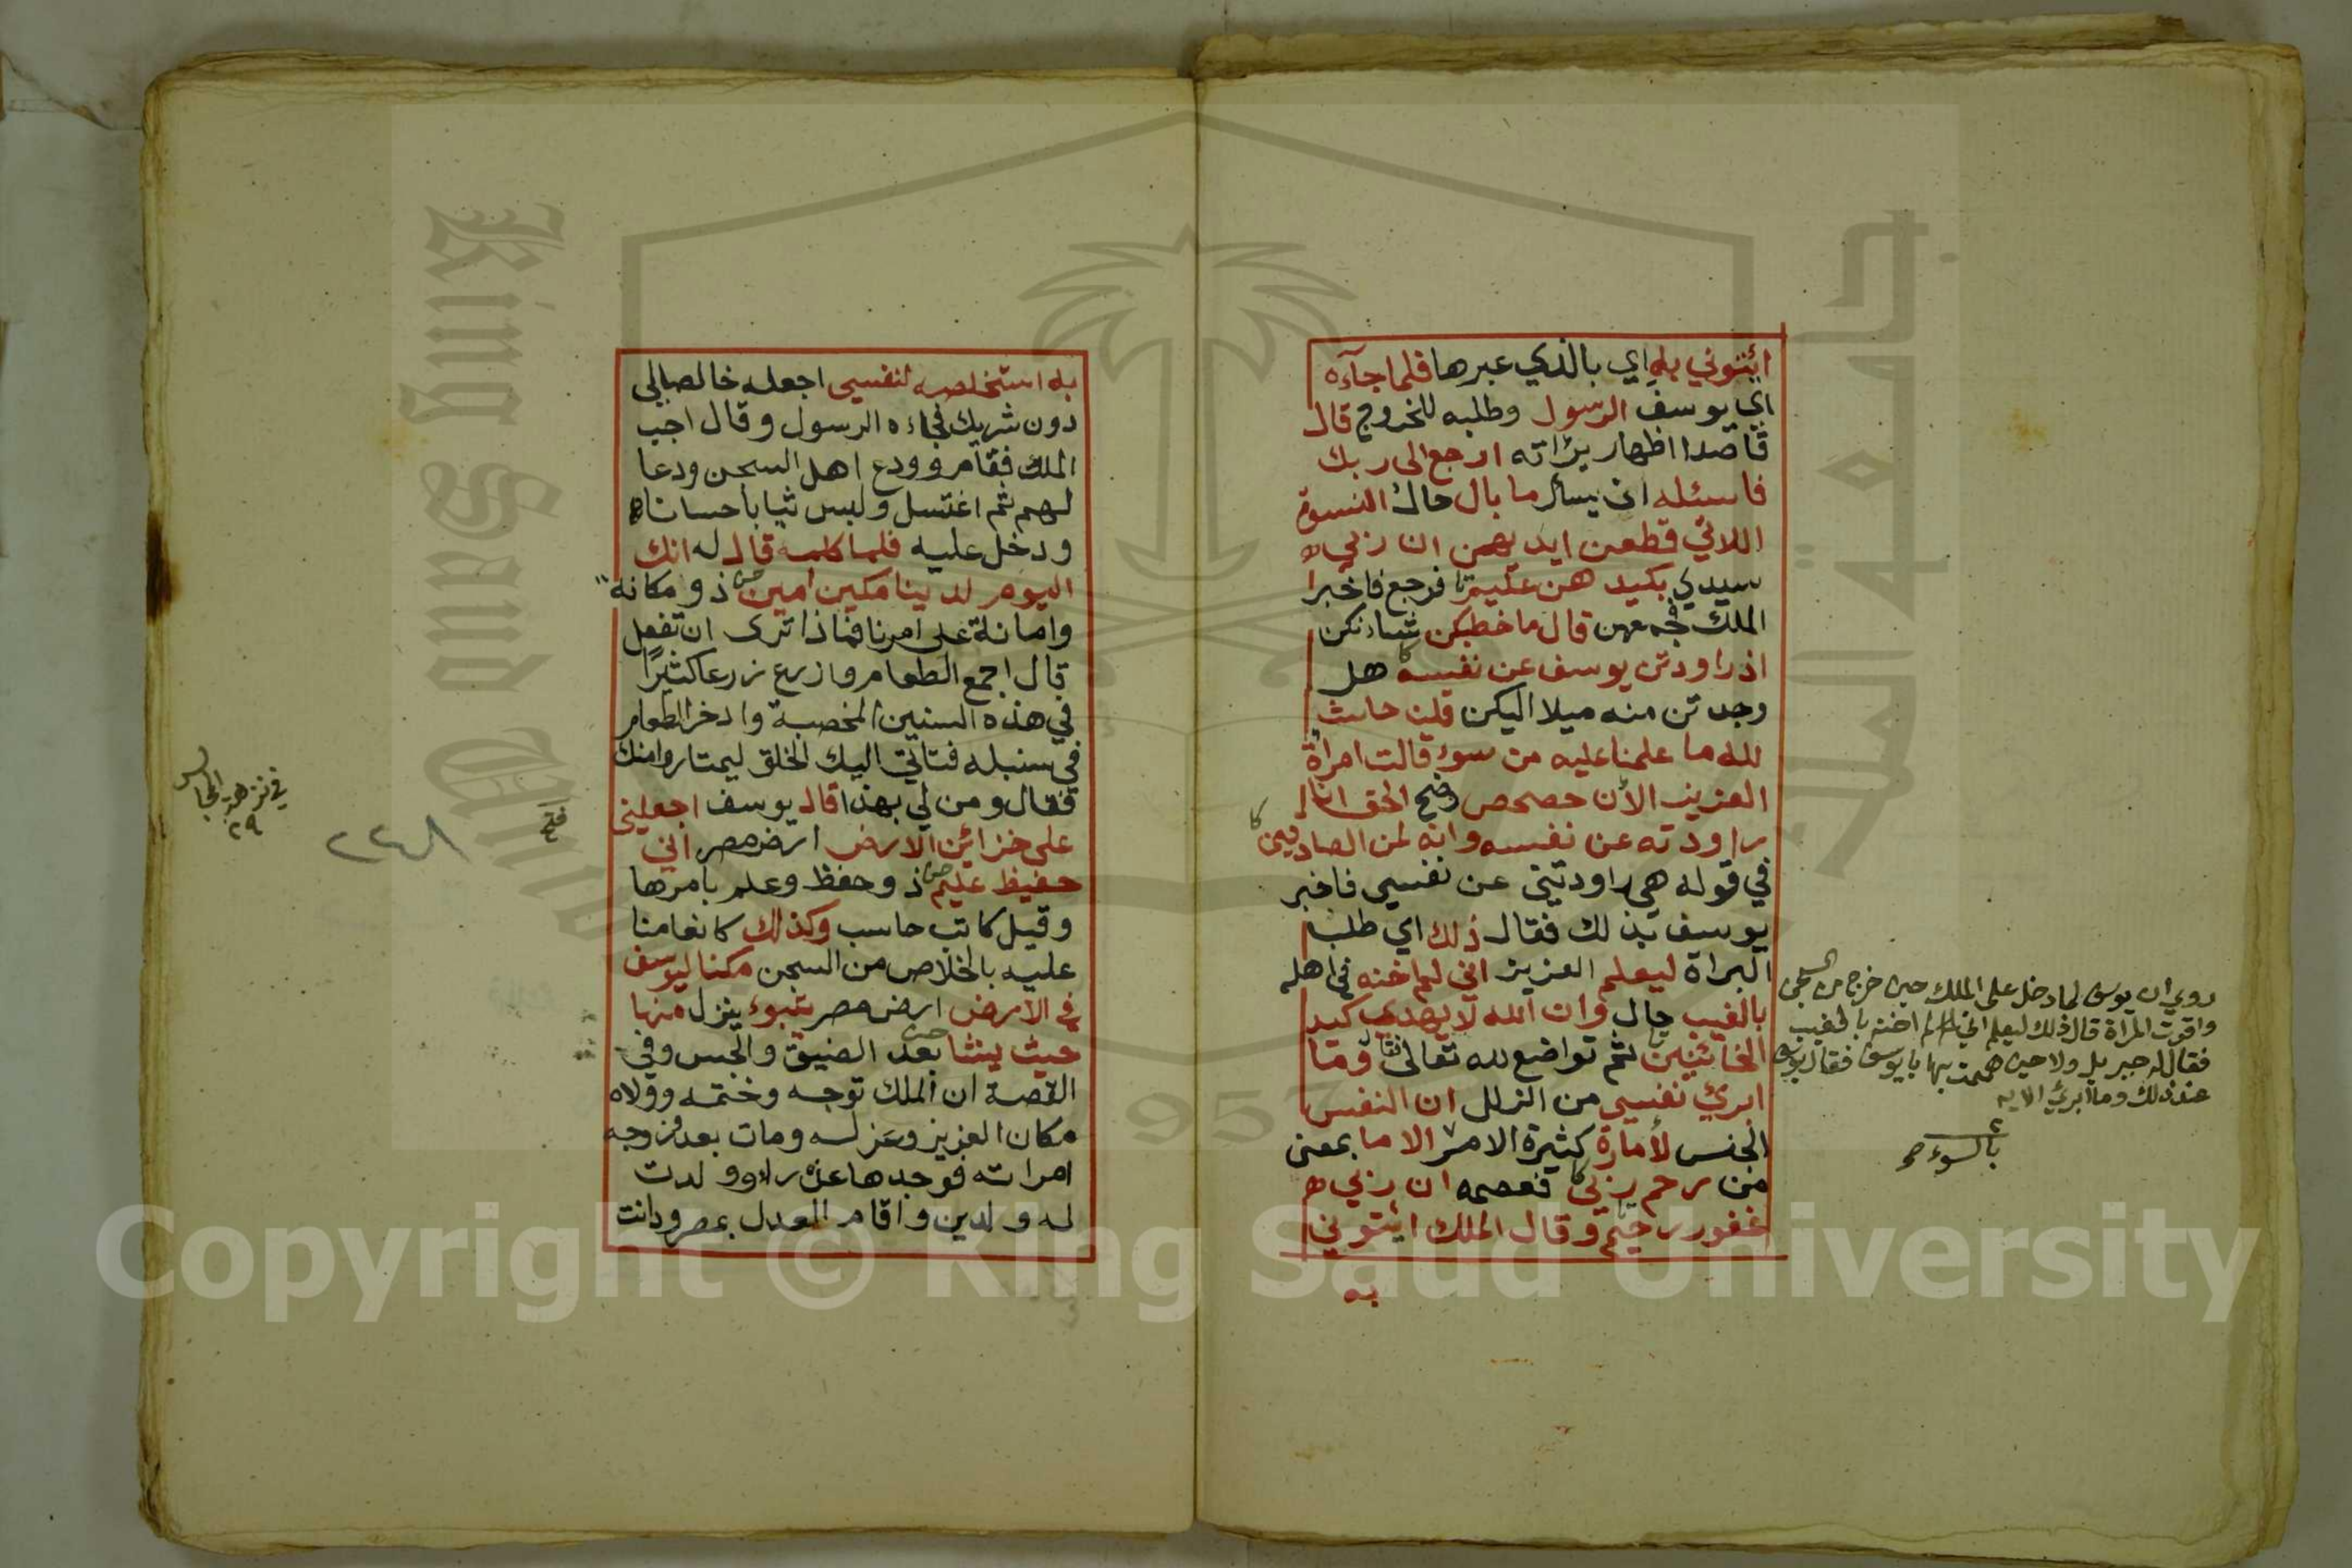 ائتوني به اي بالذي عبرها فلما جآءه
اي يوسف الرسول وطلبه للخروج قال
قاصدا اظهار براته ارجع الى ربك
فاسئله ان يسأل ما بال حال النسوة
اللاتي قطعن ايديهن ان ربي
سيدي بكيدهن عليم فرجع فاخبر
الملك فجمعهن قال ما خطبكن شانكن
اذ راودتن يوسف عن نفسه هل
وجدتن منه ميلا اليكن قلن حاش
لله ما علمنا عليه من سوء قالت امرأة
العزيز الآن حصحص وضح الحق انا
راودته عن نفسه وانه لمن الصادقين
في قوله هي راودتني عن نفسي فاخبر
يوسف بذلك فقال ذلك اي طلب
البراة ليعلم العزيز اني لم اخنه في اهله
بالغيب حال وان الله لا يهدي كيد
الخائنين ثم تواضع لله تعالى فقال وما
ابرئ نفسي من الزلل ان النفس
الجنس لأمارة كثيرة الامر الا ما بمعنى
من رحم ربي فعصمه ان ربي
غفور رحيم وقال الملك ائتوني
به
روي ان يوسف لما دخل على الملك حين خرج من السجن
واقرت المراة قال ذلك ليعلم اني لم اخنه بالغيب
فقال له جبريل ولا حين هممت بها يا يوسف فقال يوسف
عند ذلك وما ابرئ الايه
بالسوء صح
به استخلصه لنفسي اجعله خالصا لي
دون شريك فجاءه الرسول وقال اجب
الملك فقام وودع اهل السجن ودعا
لهم ثم اغتسل ولبس ثيابا حسانا
ودخل عليه فلما كلمه قال له انك
اليوم لدينا مكين امين ذو مكانة
وامانة على امرنا فماذا ترى ان تفعل
قال اجمع الطعام وازرع زرعا كثيرًا
في هذه السنين المخصبة وادخر الطعام
في سنبله فتاتي اليك الخلق ليمتاروا منك
فقال ومن لي بهذا قال يوسف اجعلني
على خزائن الارض ارض مصر اني
حفيظ عليم ذو حفظ وعلم بامرها
وقيل كاتب حاسب وكذلك كانعامنا
عليه بالخلاص من السجن مكنا ليوسف
في الارض ارض مصر يتبوء ينزل منها
حيث يشا بعد الضيق والحبس وفي
القصة ان الملك توجه وختمه وولاه
مكان العزيز وعزله ومات بعد فزوجه
امراته فوجدها عذراء وولدت
له ولدين واقام العدل بمصر ودانت
في نزهة المجالس
٢٩
٢٢٨
Copyright © King Saud University
King Saud University
1957